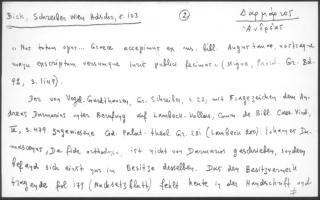 Bick, Schreiber Wien. Hdschr., S. 103
②
Δαρμάριος
Ἀνδρέας
"Nos totum opus... Graece accepimus ex ms. bibl. Augustanae, nostraque
manu exscriptum versumque iuris publici fecimus." (Migne, Patrol. Gr. Bd.
92, S. 1149).
Der von Vogel-Gardthausen, Gr. Schreiber, S. 22, mit Fragezeichen dem An-
dreas Darmarios unter Berufung auf Lambeck-Kollar, Comm. de Bibl. Caes. Vind.,
S. 439 zugewiesene Cod. Palat. theol. Gr. 231 (Lambeck 200): Iohannes Da-
mascenus, De fide orthodoxa, ist nicht von Darmarios geschrieben, sondern
befand sich einst nur im Besitze desselben. Das den Besitzvermerk
tragende fol. 179 (Nachsetzblatt) fehlt heute in der Handschrift und